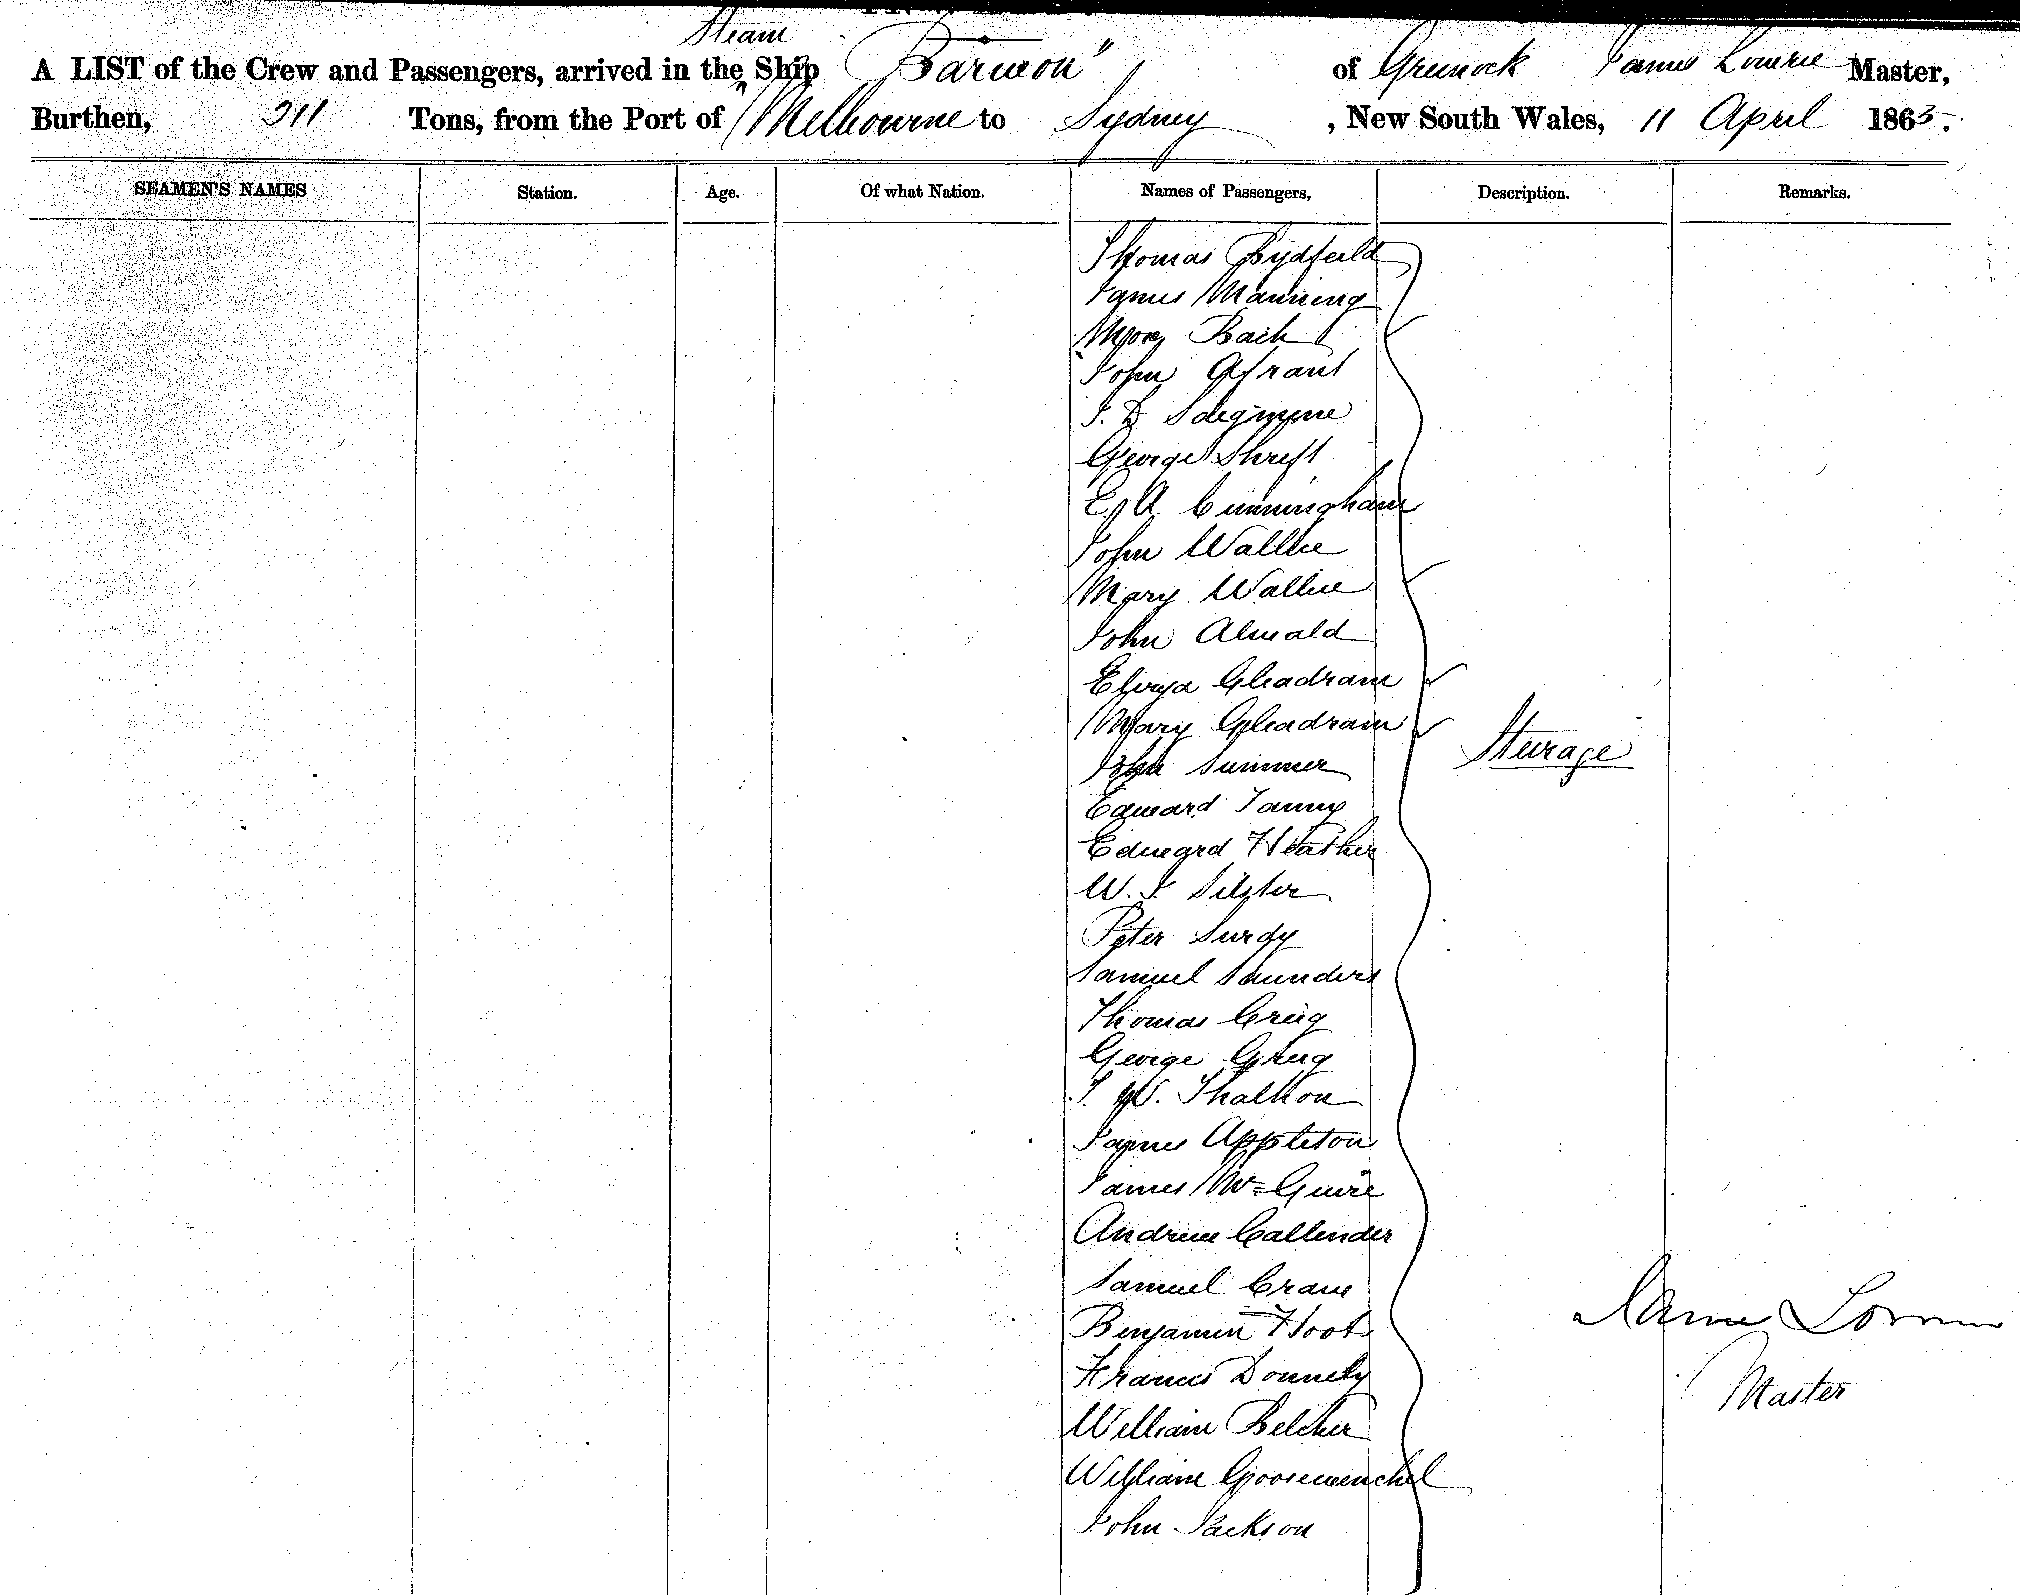 Steam
A LIST of the Crew and Passengers, arrived in the Ship "Barwon" of Greenock James Lowrie Master,
Burthen, 311 Tons, from the Port of Melbourne to Sydney, New South Wales, 11 April 1863.
SEAMEN'S NAMES Station. Age. Of what Nation. Names of Passengers, Description. Remarks.
Thomas
James Manning
Mary
John Grant
George Shrift
E. A. Cunningham
John Wallie
Mary Wallie
John
Gleadram
Mary Gleadram
John Summer
Edward
Edward Heather
W. J. Silster
Steerage
Peter Surdy
Samuel Saunders
Thomas Greig
George Greig
W.
James Appleton
James McGuire
Andrew Callender
Samuel Crane
Benjamin Hoot
Francis Donnely
William Belcher
William
John Jackson
James Lowrie
Master